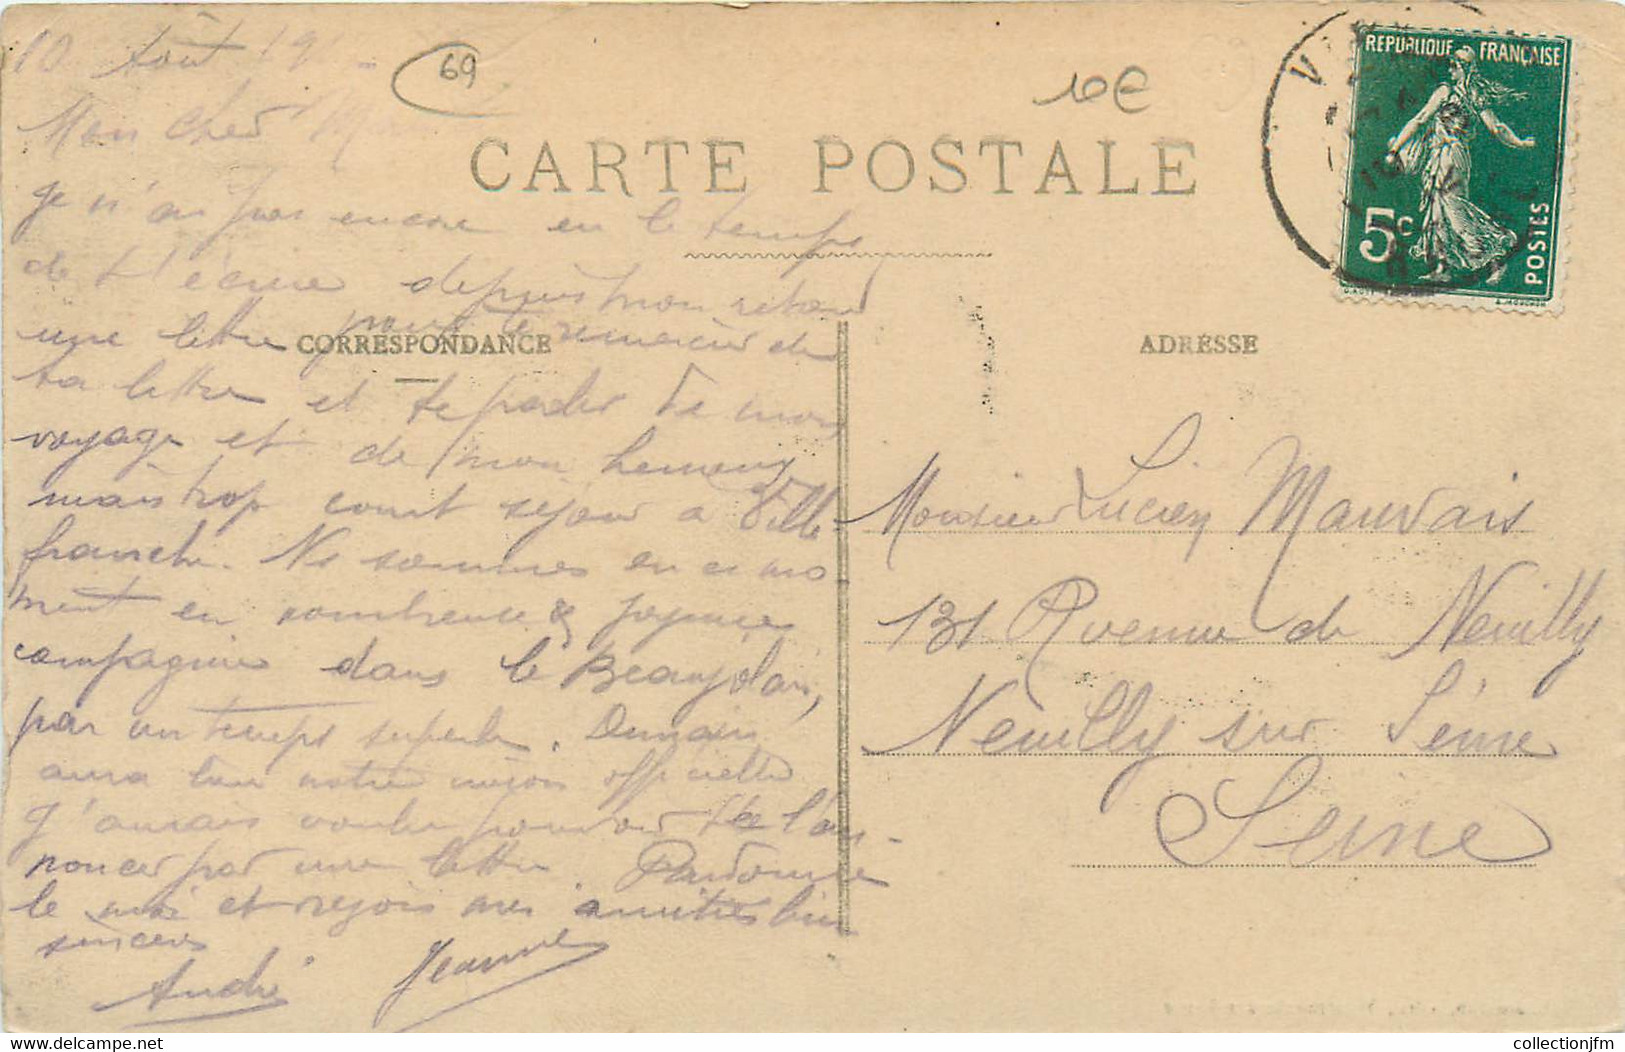 10 Août 19
69
10€
Mon cher
CARTE POSTALE
REPUBLIQUE FRANÇAISE
5c
POSTES
Je n'ai pas encore eu le temps
de t'écrire depuis mon retour
une lettre pour te remercier de
CORRESPONDANCE
ADRESSE
ta lettre et te parler de mon
voyage et de mon heureux
mais trop court séjour à Ville-
franche. Ns sommes en ce mo
ment en nombreuse & joyeuse
compagnie dans le Beaujolais,
par un temps superbe. Demain
aura lieu notre officielle
J'aurais voulu pouvoir te l'an-
noncer par une lettre. Pardonne
le moi et reçois mes amitiés bien
sincères
André Jeanne
Monsieur Lucien Mauvais
131 Avenue de Neuilly
Neuilly sur Seine
Seine
collectionjfm